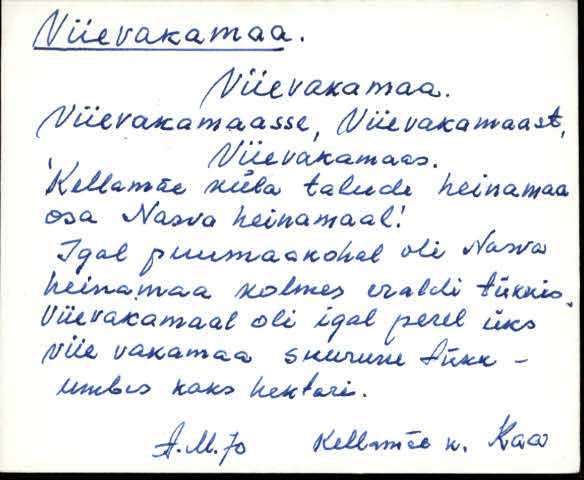 Viievakamaa.
Viievakamaa.
Viievakamaasse, Viievakamaast,
Viievakamaas.
'Kellamäe küla talude heinamaa
osa Nasva heinamaal!
Igal puumaakohal oli Nasva
heinamaa kolmes eraldi tükkis.
Viievakamaal oli igal perel üks
viie vakamaa suurune tükk -
umbes kaks hektari.
Kellamäe k. Kaa